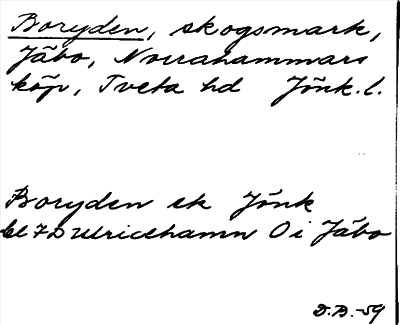 Boryden, skogsmark,
Jäbo, Norrahammars
köp, Tveta hd Jönk. l.
Boryden ek Jönk
bl 7D Ulricehamn O i Jäbo
D.B.-59